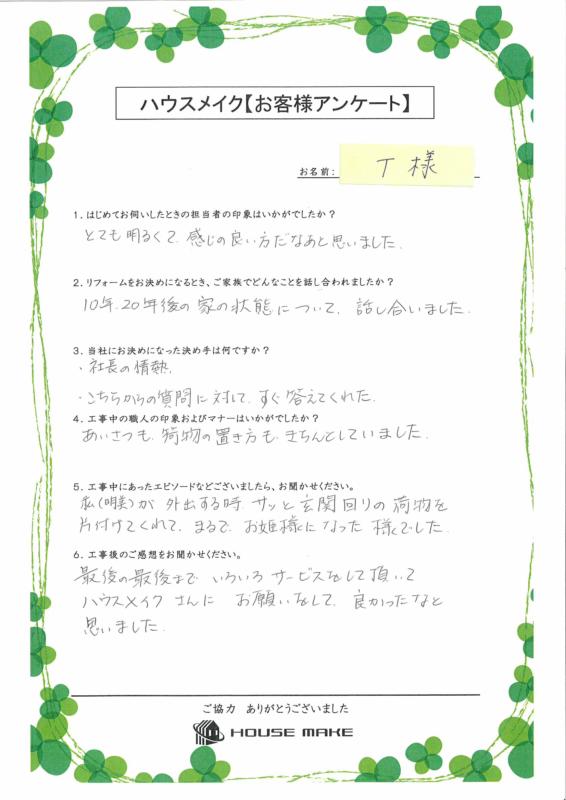 ハウスメイク【お客様アンケート】
お名前: T 様
1.はじめてお伺いしたときの担当者の印象はいかがでしたか?
とても明るくて、感じの良い方だなあと思いました。
2.リフォームをお決めになるとき、ご家族でどんなことを話し合われましたか?
10年、20年後の家の状態について、話し合いました。
3.当社にお決めになった決め手は何ですか?
・社長の情熱。
・こちらからの質問に対して、すぐ答えてくれた。
4.工事中の職人の印象およびマナーはいかがでしたか?
あいさつも、荷物の置き方も、きちんとしていました。
5.工事中にあったエピソードなどございましたら、お聞かせください。
私(明美)が外出する時、サッと玄関回りの荷物を
片付けてくれて、まるで、お姫様になった様でした。
6.工事後のご感想をお聞かせください。
最後の最後まで、いろいろサービスをして頂いて
ハウスメイクさんに お願いをして、良かったなと
思いました。
ご協力 ありがとうございました
HOUSE MAKE